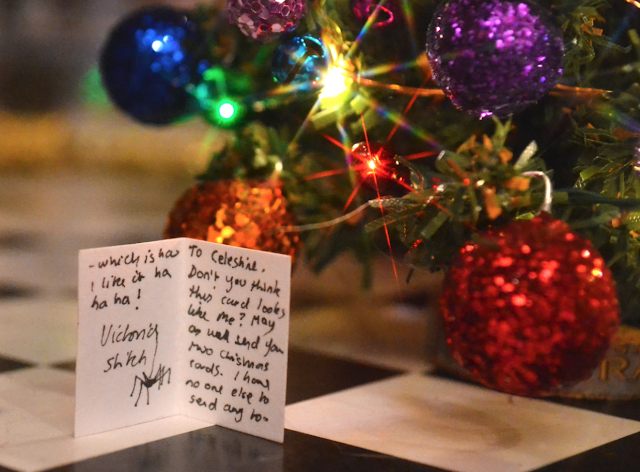 To Celestine,
Don't you think
this card looks
like me? May
as well send you
two Christmas
cards. I have
no one else to
send any to-
-which is how
I like it ha
ha ha!
Victoria
Stitch
RA